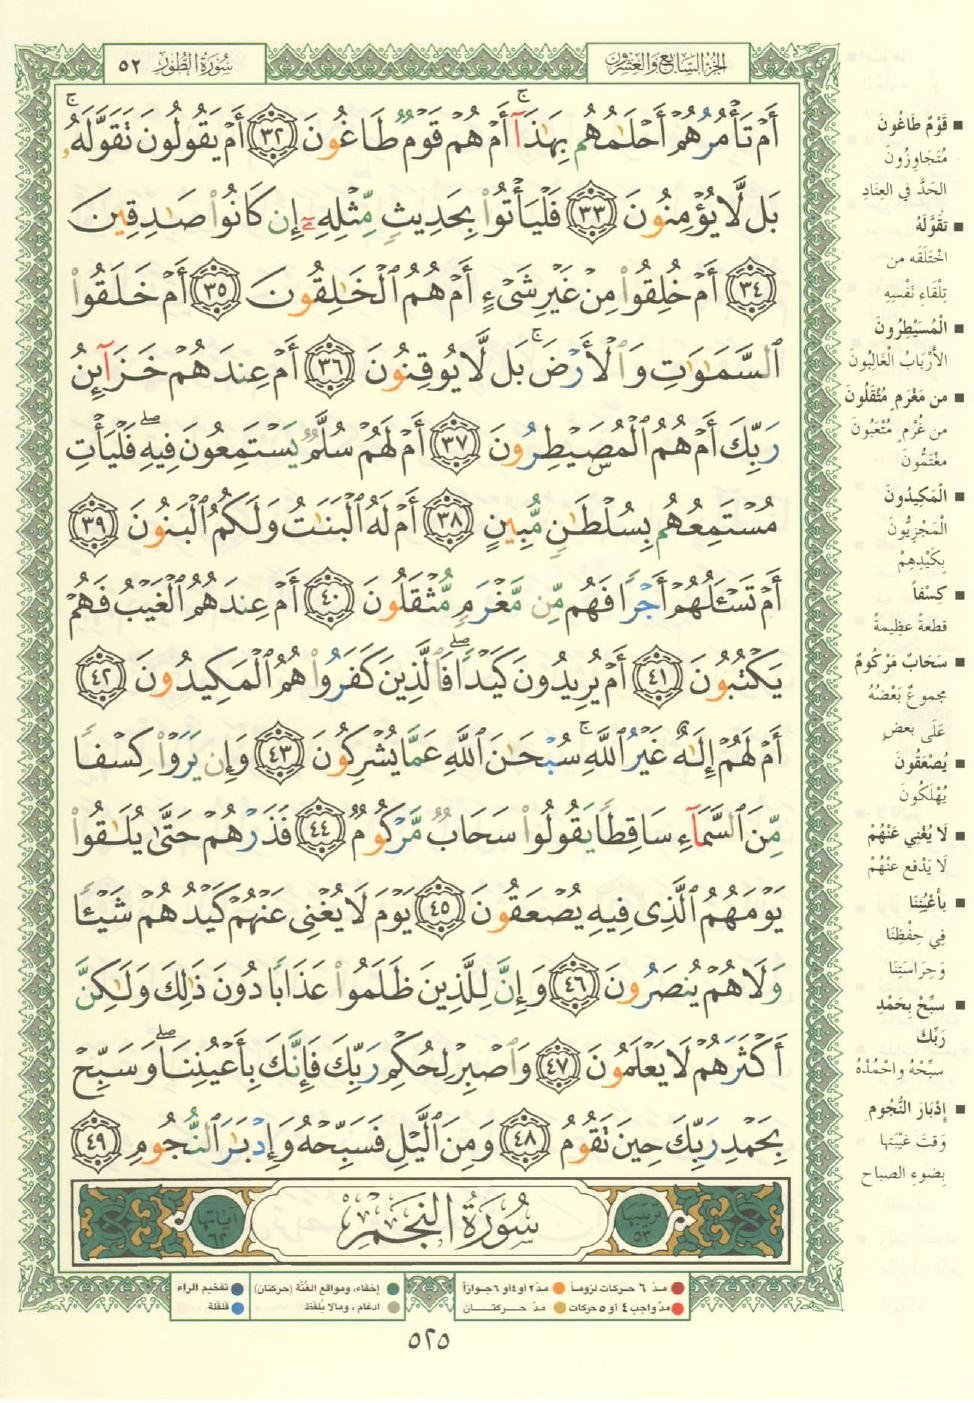 سُورَةُ الطُّورِ ٥٢
الجُزْءُ السَّابِعُ وَالعِشْرُونَ
أَمْ تَأْمُرُهُمْ أَحْلَٰمُهُم بِهَٰذَآ ۚ أَمْ هُمْ قَوْمٌ طَاغُونَ ٣٢ أَمْ يَقُولُونَ تَقَوَّلَهُۥ ۚ
بَل لَّا يُؤْمِنُونَ ٣٣ فَلْيَأْتُوا۟ بِحَدِيثٍ مِّثْلِهِۦٓ إِن كَانُوا۟ صَٰدِقِينَ
٣٤ أَمْ خُلِقُوا۟ مِنْ غَيْرِ شَىْءٍ أَمْ هُمُ ٱلْخَٰلِقُونَ ٣٥ أَمْ خَلَقُوا۟
ٱلسَّمَٰوَٰتِ وَٱلْأَرْضَ ۚ بَل لَّا يُوقِنُونَ ٣٦ أَمْ عِندَهُمْ خَزَآئِنُ
رَبِّكَ أَمْ هُمُ ٱلْمُصَۣيْطِرُونَ ٣٧ أَمْ لَهُمْ سُلَّمٌ يَسْتَمِعُونَ فِيهِ ۖ فَلْيَأْتِ
مُسْتَمِعُهُم بِسُلْطَٰنٍ مُّبِينٍ ٣٨ أَمْ لَهُ ٱلْبَنَٰتُ وَلَكُمُ ٱلْبَنُونَ ٣٩
أَمْ تَسْـَٔلُهُمْ أَجْرًا فَهُم مِّن مَّغْرَمٍ مُّثْقَلُونَ ٤٠ أَمْ عِندَهُمُ ٱلْغَيْبُ فَهُمْ
يَكْتُبُونَ ٤١ أَمْ يُرِيدُونَ كَيْدًا ۖ فَٱلَّذِينَ كَفَرُوا۟ هُمُ ٱلْمَكِيدُونَ ٤٢
أَمْ لَهُمْ إِلَٰهٌ غَيْرُ ٱللَّهِ ۚ سُبْحَٰنَ ٱللَّهِ عَمَّا يُشْرِكُونَ ٤٣ وَإِن يَرَوْا۟ كِسْفًا
مِّنَ ٱلسَّمَآءِ سَاقِطًا يَقُولُوا۟ سَحَابٌ مَّرْكُومٌ ٤٤ فَذَرْهُمْ حَتَّىٰ يُلَٰقُوا۟
يَوْمَهُمُ ٱلَّذِى فِيهِ يُصْعَقُونَ ٤٥ يَوْمَ لَا يُغْنِى عَنْهُمْ كَيْدُهُمْ شَيْـًٔا
وَلَا هُمْ يُنصَرُونَ ٤٦ وَإِنَّ لِلَّذِينَ ظَلَمُوا۟ عَذَابًا دُونَ ذَٰلِكَ وَلَٰكِنَّ
أَكْثَرَهُمْ لَا يَعْلَمُونَ ٤٧ وَٱصْبِرْ لِحُكْمِ رَبِّكَ فَإِنَّكَ بِأَعْيُنِنَا ۖ وَسَبِّحْ
بِحَمْدِ رَبِّكَ حِينَ تَقُومُ ٤٨ وَمِنَ ٱلَّيْلِ فَسَبِّحْهُ وَإِدْبَٰرَ ٱلنُّجُومِ ٤٩
ترتيبها ٥٣
سُورَةُ النَّجْمِ
آياتها ٦٢
قَوْمٌ طَاغُونَ
مُتَجَاوِزُونَ
الحَدَّ في العِنَادِ
تَقَوَّلَهُ
اخْتَلَقَه من
تِلْقَاءِ نَفْسِهِ
الْمُسَيْطِرُونَ
الأَرْبَابُ الْغَالِبُونَ
من مَغْرَمٍ مُثْقَلُونَ
من غُرْمٍ مُتْعَبُونَ
مغْتَمُّونَ
الْمَكِيدُونَ
الْمَجْزِيُّونَ
بِكَيْدِهِمْ
كِسْفاً
قطعةً عظِيمةً
سَحَابٌ مَرْكُومٌ
مجموعٌ بَعْضُهُ
عَلَى بعضٍ
يُصْعَقُونَ
يُهْلَكُونَ
لَا يُغْنِي عَنْهُمْ
لَا يَدْفع عنْهُمْ
بأَعْيُنِنَا
فِي حِفْظِنَا
وَحِرَاسَتِنَا
سبِّحْ بِحَمْدِ
رَبِّكَ
سبِّحْهُ واحْمَدْهُ
إِدْبَارَ النُّجُومِ
وَقتَ غَيْبَتِها
بِضوءِ الصباحِ
مدّ ٦ حركات لزوماً
مدّ ٢ أو ٤ أو ٦ جوازاً
مدّ واجب ٤ أو ٥ حركات
مدّ حركتان
إخفاء، ومواقع الغُنَّة (حركتان)
ادغام، ومالا يُلفَظ
تفخيم الراء
قلقلة
٥٢٥